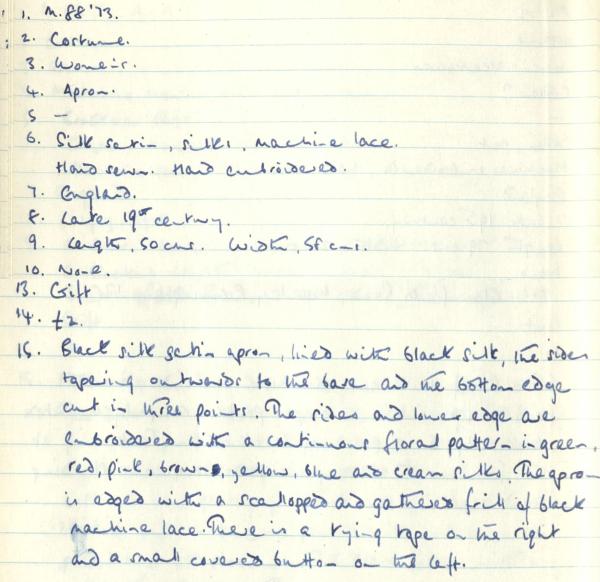 1. M.88'73.
2. Costume.
3. Women's.
4. Apron.
5 -
6. Silk satin, silks, machine lace.
Hand sewn. Hand embroidered.
7. England.
8. Late 19th century.
9. Length, 50 cms. Width, 58 cms.
10. None.
13. Gift
14. £2.
15. Black silk satin apron, lined with black silk, the sides
tapering outwards to the base and the bottom edge
cut in three points. The sides and lower edge are
embroidered with a continuous floral pattern in green,
red, pink, brown, yellow, blue and cream silks. The apron
is edged with a scalloped and gathered frill of black
machine lace. There is a tying tape on the right
and a small covered button on the left.